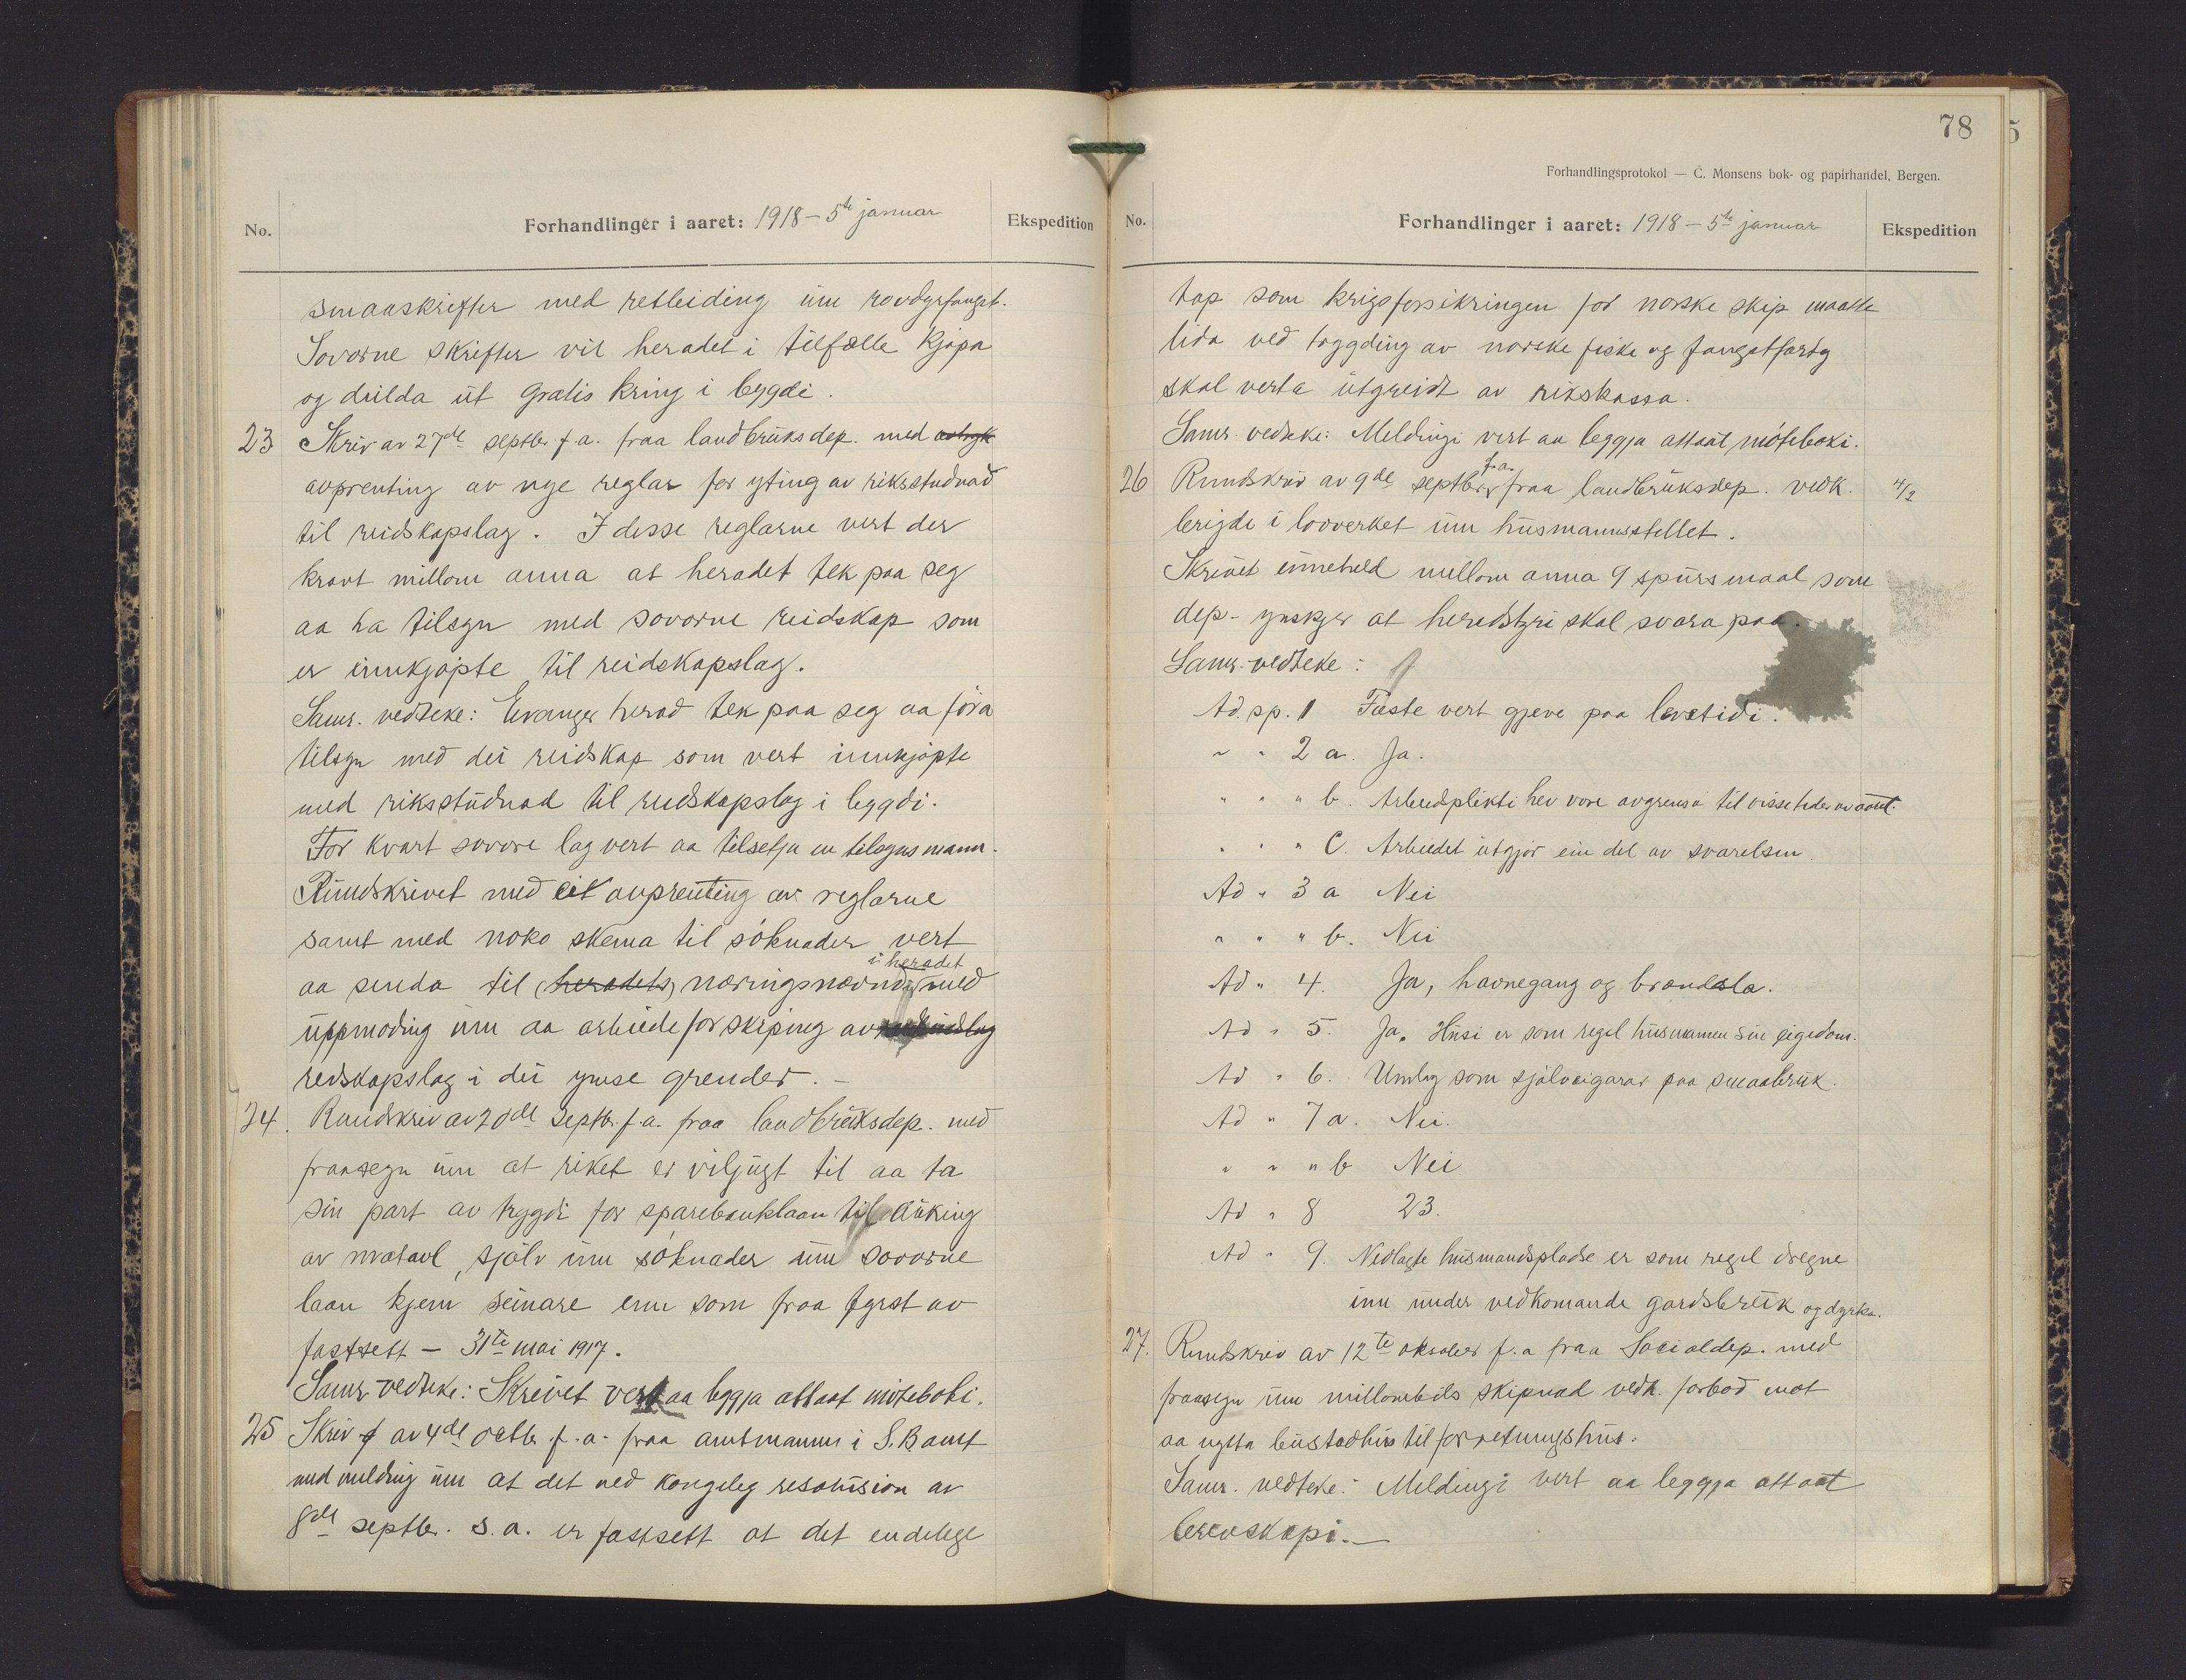 No.
Forhandlinger i aaret: 1918 - 5te januar
Ekspedition
smaaskrifter med retleiding um rovdyrfangst.
Sovorne skrifter vil heradet i tilfælle kjøpa
og deilda ut gratis kring i bygdi.
23 Skriv av 27de septbr. f.a. fraa landbruksdep. med avtryk
avprenting av nye reglar for yting av riksstudnad
til reidskapslag. I desse reglarne vert der
kravt millom anna at heradet tek paa seg
aa ha tilsyn med sovorne reidskap som
er innkjøpte til reidskapslag.
Samr. vedteke: Evanger herad tek paa seg aa föra
tilsyn med dei reidskap som vert innkjøpte
med riksstudnad til reidskapslag i bygdi.
For kvart sovore lag vert aa tilsetja ein tilsynsmann.
Rundskrivet med eit avprenting av reglarne
samt med noko skema til söknader vert
i heradet
aa senda til (heradets) næringsnævndi med
uppmoding um aa arbeide for skiping av
reidskapslag i dei ymse grender. -
24. Rundskriv av 20de septb. f.a. fraa landbruksdep. med
fraasegn um at riket er viljugt til aa ta
sin part av trygdi for sparebanklaan til auking
av matavl, sjølv um söknader um sovorne
laan kjem seinare enn som fraa fyrst av
fastsett - 31te mai 1917.
Samr. vedteke: Skrivet vert aa leggja attaat möteboki.
25 Skriv f av 4de octbr. f.a. fraa amtmannen i S.B amt
med melding um at det ved kongeleg resolusion av
8de septbr. s.a. er fastsett at det endelege
78
Forhandlingsprotokol — C. Monsens bok- og papirhandel, Bergen.
No.
Forhandlinger i aaret: 1918 - 5te januar
Ekspedition
tap som krigsforsikringen for norske skip maatte
lida ved tryggding av norske fiske og fangstfartøy
skal verta utgreidt av rikskassa.
Samr. vedteke: Meldingi vert aa leggja attaat möteboki.
f.a.
26 Rundskriv av 9de septbr. fraa landbruksdep. vedk. 4/2
brigde i lovverket um husmannsstellet.
Skrivet inneheld millom anna 9 spursmaal som
dep. ynskjer at heradstyri skal svara paa.
Samr. vedteke:
Ad. sp. 1 Fæste vert gjeve paa levetidi.
" " 2 a. Ja.
" " " b. Arbeidplikti hev vore avgrensa til visse tider av aaret.
" " " c. Arbeidet utgjör ein del av svarelsen.
Ad " 3 a Nei
" " " b. Nei
Ad " 4. Ja, havnegang og brandsla.
Ad " 5. Ja. Husi er som regel husmannen sin eigedom.
Ad " 6. Umlag som sjølveigarar paa smaabruk.
Ad " 7 a. Nei.
" " " b Nei
Ad " 8 23.
Ad " 9. Nedlagte husmandspladse er som regel dregne
inn under vedkomande gardsbruk og dyrka.
27. Rundskriv av 12te oktober f.a fraa Socialdep. med
fraasegn um millombils skipnad vedk. forbod mot
aa nytta bustadhus til forretningshus.
Samr. vedteke: Meldingi vert aa leggja attaat
brevskapi. -